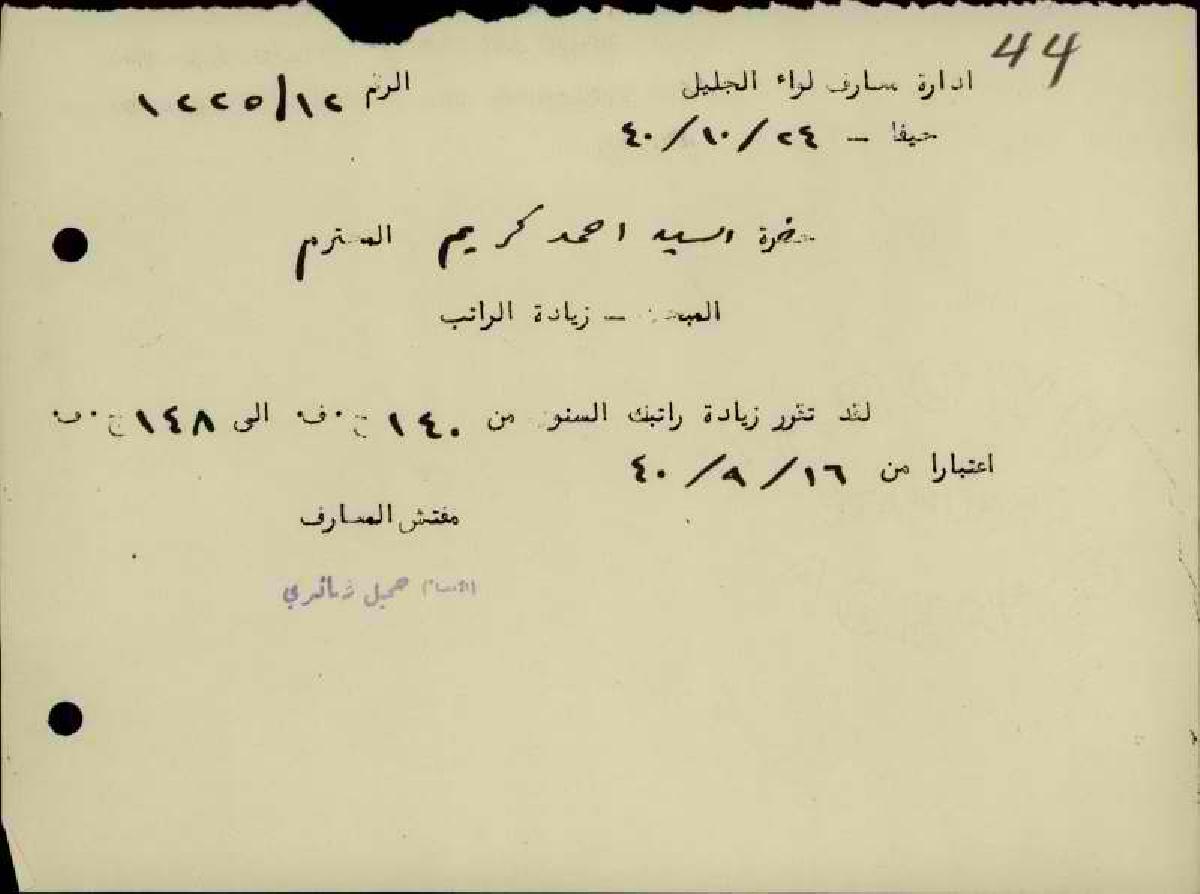 44
ادارة معارف لواء الجليل الرقم ١٢٢٥/١٢
حيفا – ٤٠/١٠/٢٤
حضرة السيد احمد كريم المحترم
المبحث – زيادة الراتب
لقد تقرر زيادة راتبك السنوي من ١٤٠ ج٠ف٠ الى ١٤٨ ج٠ف٠
اعتبارا من ٤٠/٩/١٦
مفتش المعارف
(الامضاء) جميل